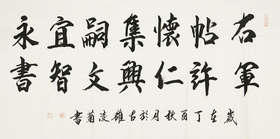 右軍
帖許
懷仁
集興
嗣文
宜智
永書
歲在丁酉秋月於古雄